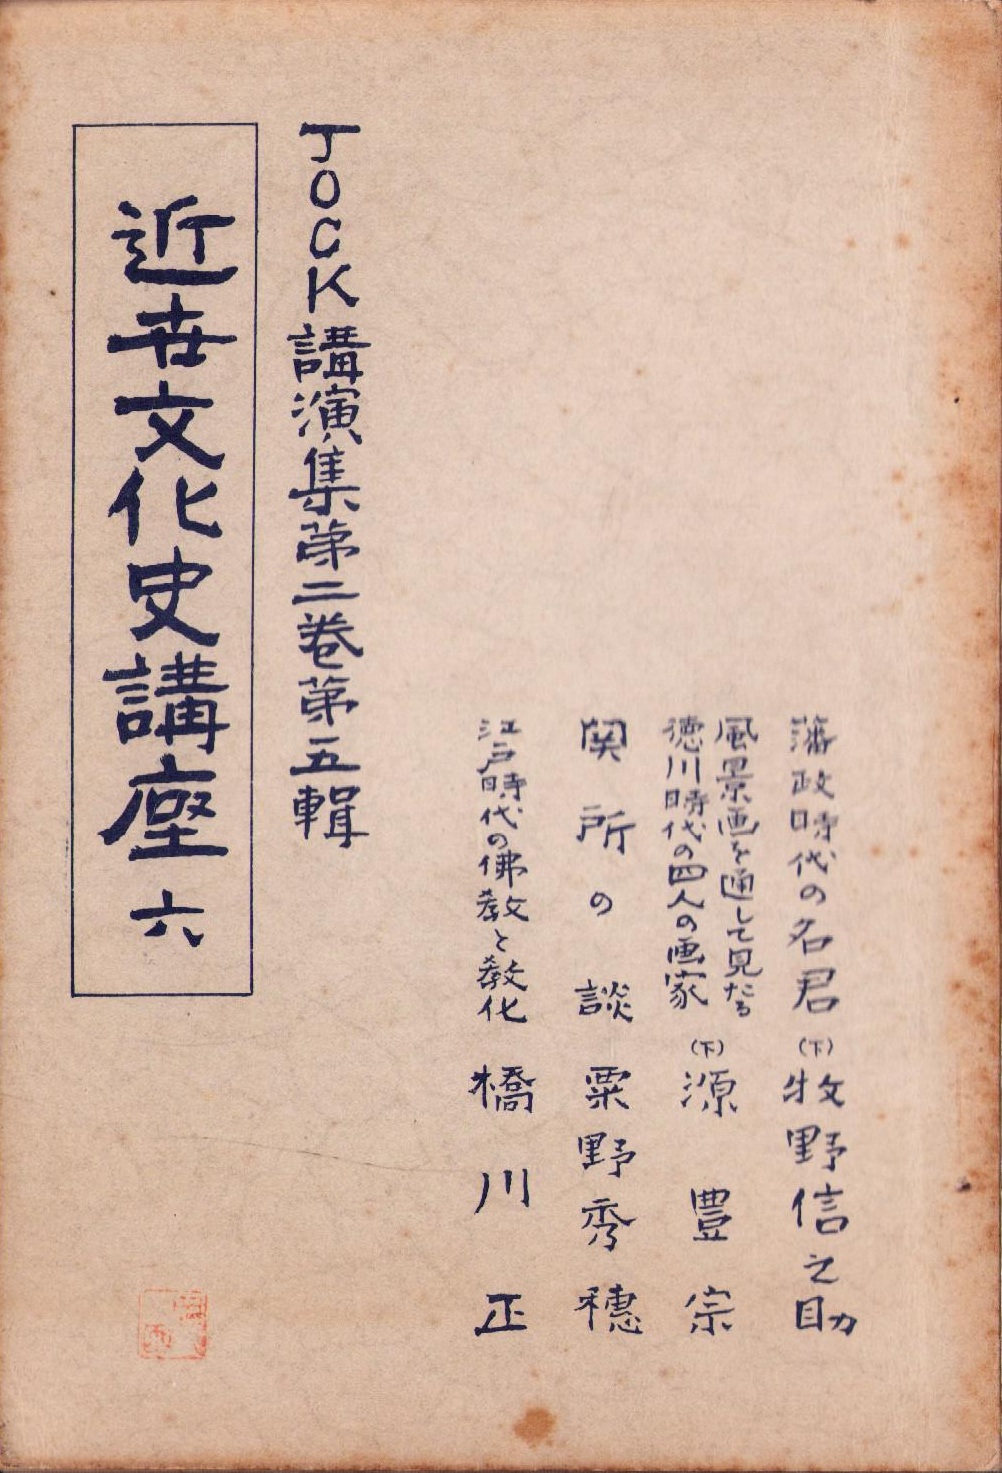 藩政時代の名君(下)牧野信之助
風景画を通して見たる
徳川時代の四人の画家(下)源豊宗
関所の談 粟野秀穂
江戸時代の佛教と教化 橋川正
JOCK講演集第二巻第五輯
近世文化史講座 六